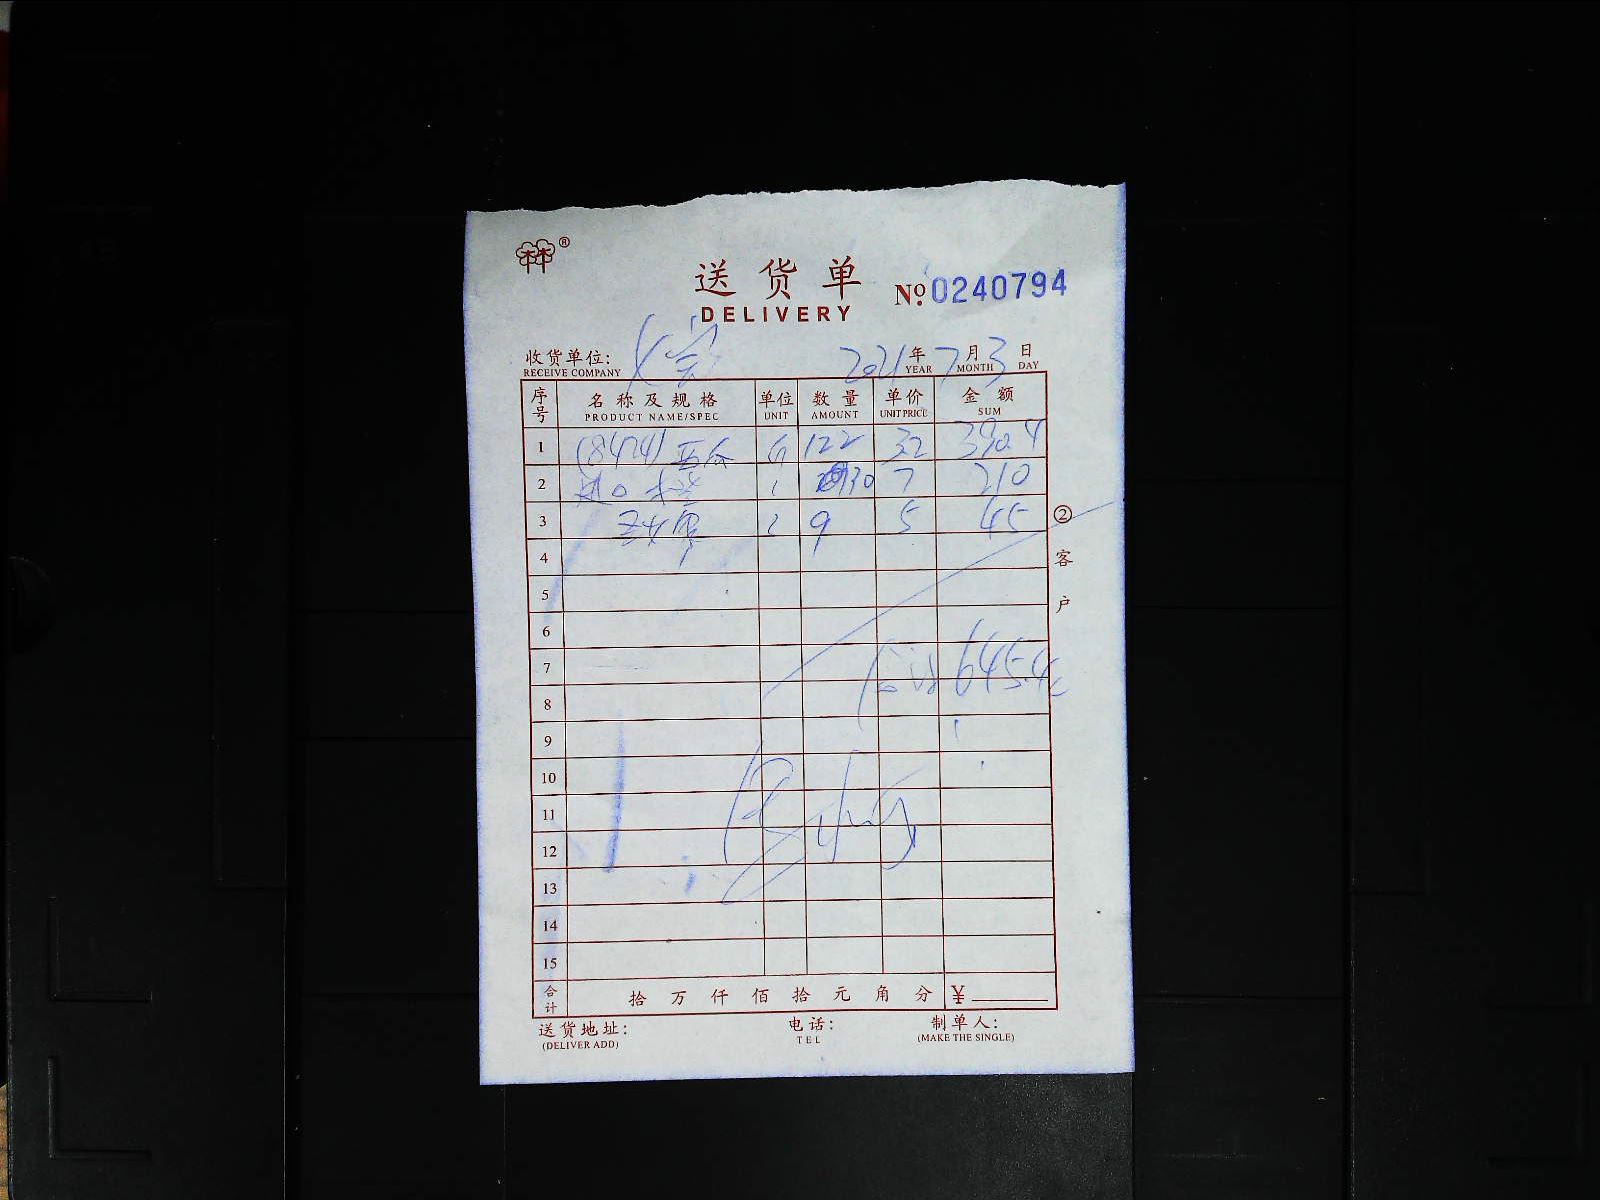 送货单
№ 0240794
DELIVERY
收货单位: 2021年7月3日
RECEIVE COMPANY YEAR MONTH DAY
序号 名称及规格 单位 数量 单价 金额
PRODUCT NAME/SPEC UNIT AMOUNT UNIT PRICE SUM
1 (8424) 西瓜 斤 122 3.2 390.4
2 进口 30 7 210
3 9 5 45
4
5
6
7 合计 645.4元
8
9
10
11
12
13
14
15
合计 拾万仟佰拾元角分 ¥
② 客户
送货地址: 电话: 制单人:
(DELIVER ADD) TEL (MAKE THE SINGLE)